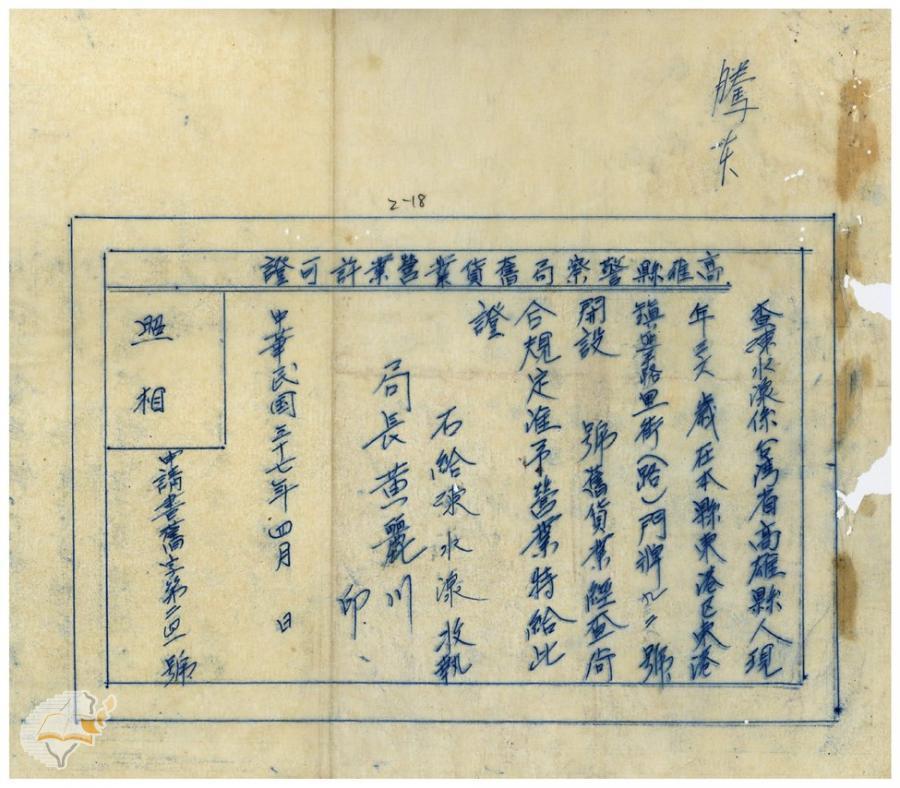 謄本
2-18
高雄縣警察局舊貨業營業許可證
查陳水濠係台灣省高雄縣人現
年三六歲在本縣東港区東港
鎮豐漁里街(路)門牌九二號
開設 號舊貨業經查尚
合規定准予營業特給此
證
右給陳水濠收執
局長黃麗川 印
中華民国三十七年四月 日
照相
申請書舊字第二四一號